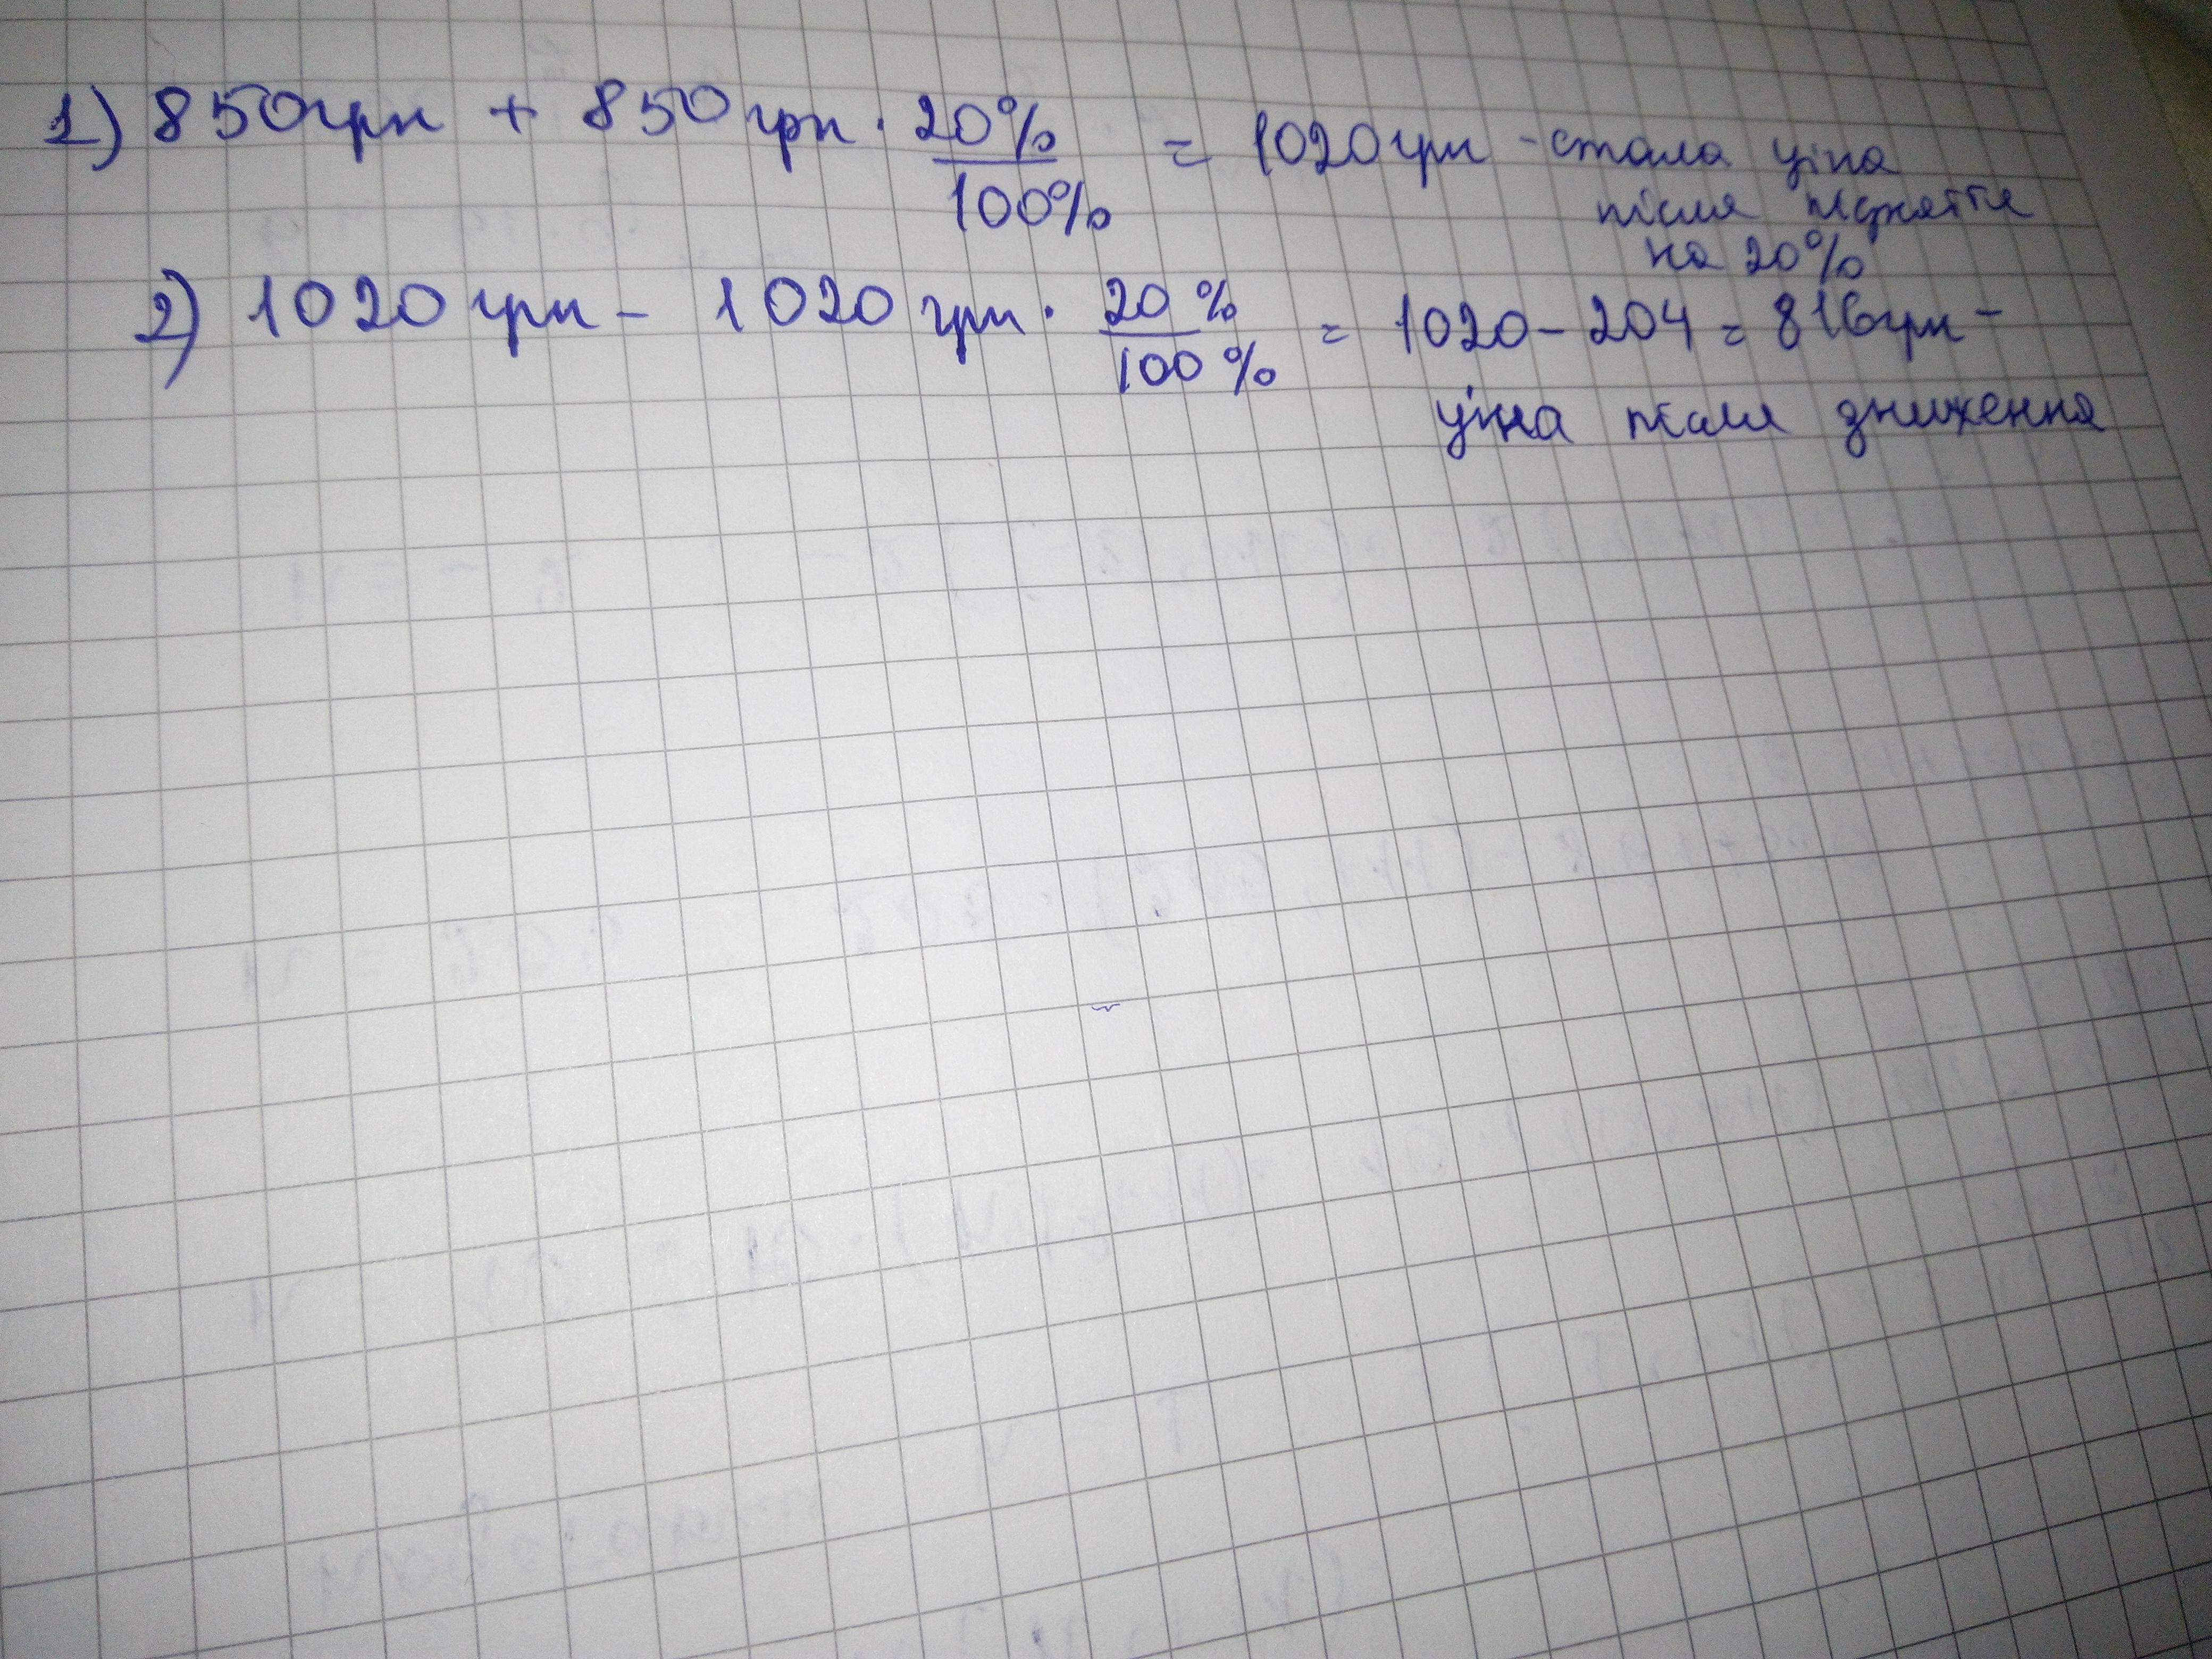 1) 850грн + 850грн · 20%/100% = 1020грн - стала ціна
після підняття
на 20%
2) 1020грн - 1020грн · 20%/100% = 1020 - 204 = 816грн -
ціна після зниження